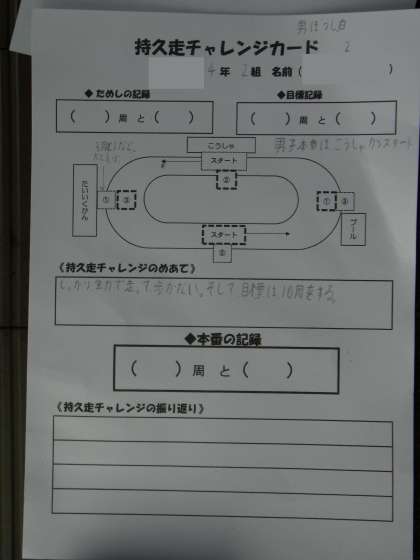 男ぼうし白
2
持久走チャレンジカード
4年 2組 名前( )
◆ためしの記録
◆目標記録
( )周 と ( )
( )周 と ( )
こうしゃ
男子本番はこうしゃからスタート
スタート
②
たいいくかん
①
③
①
③
プール
スタート
②
《持久走チャレンジのめあて》
しっかり全力で走って歩かない。そして目標は10周をする。
◆本番の記録
( )周 と ( )
《持久走チャレンジの振り返り》